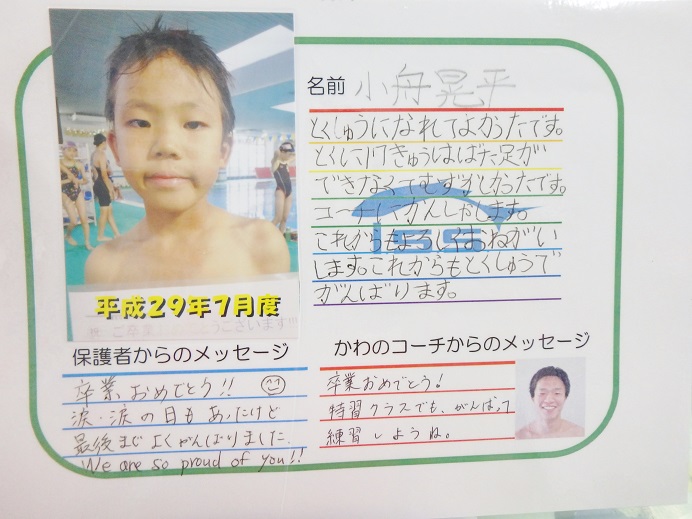 名前 小舟晃平
とくしゅうになれてよかったです。
とくに17きゅうはばた足が
できなくてむずかしかったです。
コーチにかんしゃします。
これからもよろしくおねがい
します。これからもとくしゅうで
がんばります。
平成29年7月度
ございます
保護者からのメッセージ
卒業おめでとう!!
涙・涙の日もあったけど
最後までよくがんばりました.
We are so proud of you!!
かわのコーチからのメッセージ
卒業おめでとう!
特習クラスでも、がんばって
練習しようね。